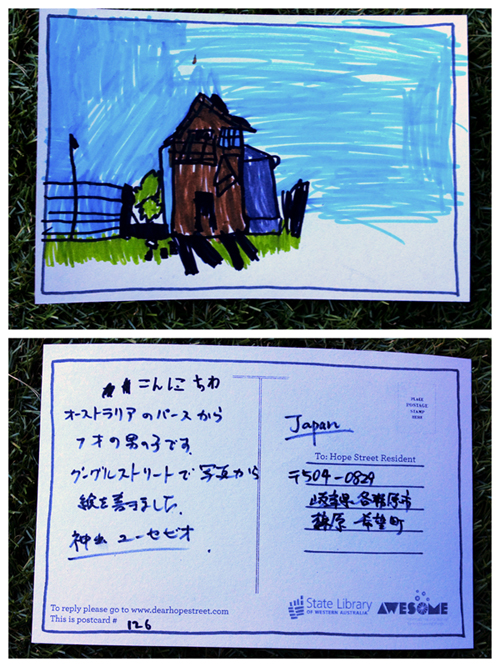 こんにちわ
オーストラリアのパースから
7才の男の子です。
グーグルストリートで写真から
絵を書きました。
神山 ユーセビオ
To reply please go to www.dearhopestreet.com
This is postcard # 126
PLACE
POSTAGE
STAMP
HERE
Japan
To: Hope Street Resident
〒504-0829
岐阜県各務原市
蘇原 希望町
State Library
OF WESTERN AUSTRALIA
AWESOME